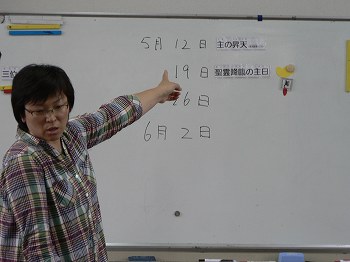 5月 12日 主の昇天
19日 聖霊降臨の主日
26日
6月 2日
三位